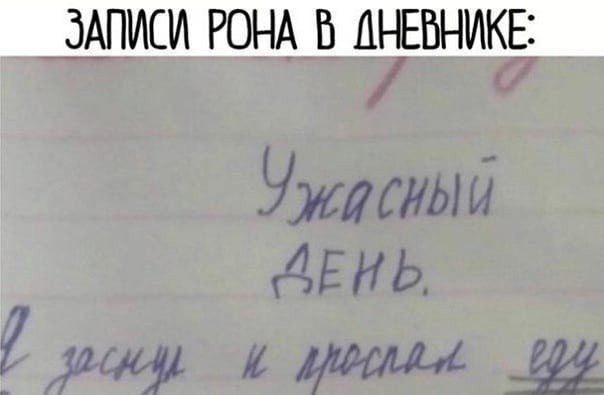 ЗАПИСИ РОНА В ДНЕВНИКЕ:
Ужасный
ДЕНЬ.
Я заснул и проспал еду